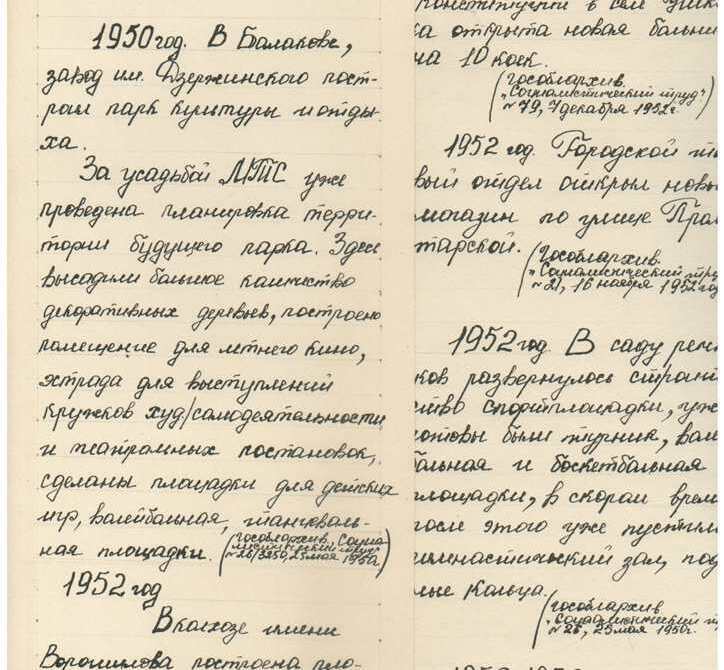 1950 год. В Балакове,
завод им. Дзержинского пост-
роил парк культуры и отды-
ха.
За усадьбой МТС уже
проведена планировка терри-
тории будущего парка. Здесь
высадили большое количество
декоративных деревьев, построено
помещение для летнего кино,
эстрада для выступлений
кружков худ/самодеятельности
и театральных постановок,
сделаны площадки для детских
игр, волейбольная, танцеваль-
ная площадки. (Гособлархив, Социа-
листический труд"
25 мая 1950)
1952 год
В колхозе имени
Ворошилова построена пло-
в селе
ка открыта новая больни
на 10 коек.
(Гособлархив.
"Социалистический труд")
№ 79, 7 декабря 1952 г.
1952 год. Городской то
вый отдел открыл новы
магазин по улице Прол
тарской. (Гособлархив.
"Социалистический тру
16 ноября 1952 год
1952 год. В саду
ков развернулось строит
ство спортплощадки, уже
готовы были турник, вол
больная и баскетбольная
площадки, в скором врем
после этого уже пустили
имнастический зал, под
ные кольца.
(Гособлархив
"Социалистический т
№ 26, 25 мая 1950г.